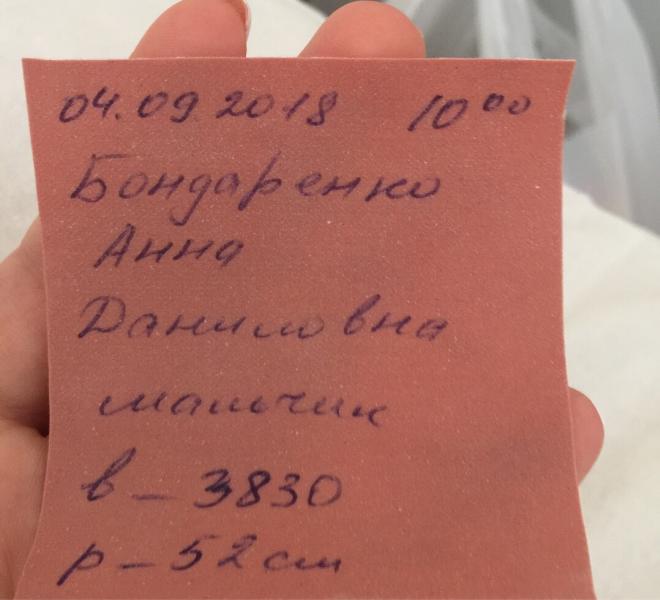 04.09.2018 10⁰⁰
Бондаренко
Анна
Даниловна
мальчик
в – 3830
р – 52 см